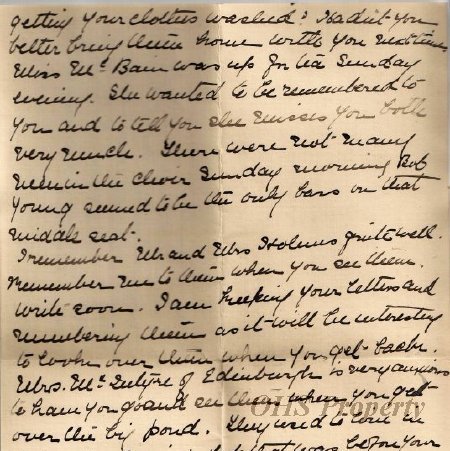 getting your clothes washed? Hadn't you
better bring them home with you next time
Miss McBain was up for tea Sunday
evening. She wanted to be remembered to
you and to tell you she misses you both
very much. There were not many
men in the choir Sunday morning Bob
Young seemed to be the only bass on that
middle seat.
I remember Mr and Mrs Holmes quite well.
Remember me to them when you see them.
Write soon. I am keeping your letters and
numbering them as it will be interesting
to look over them when you get back.
Mrs. McIntyre of Edinburgh is very anxious
to have you go and see them when you get
over the big pond. They used to live in
that was before your
OHS Property